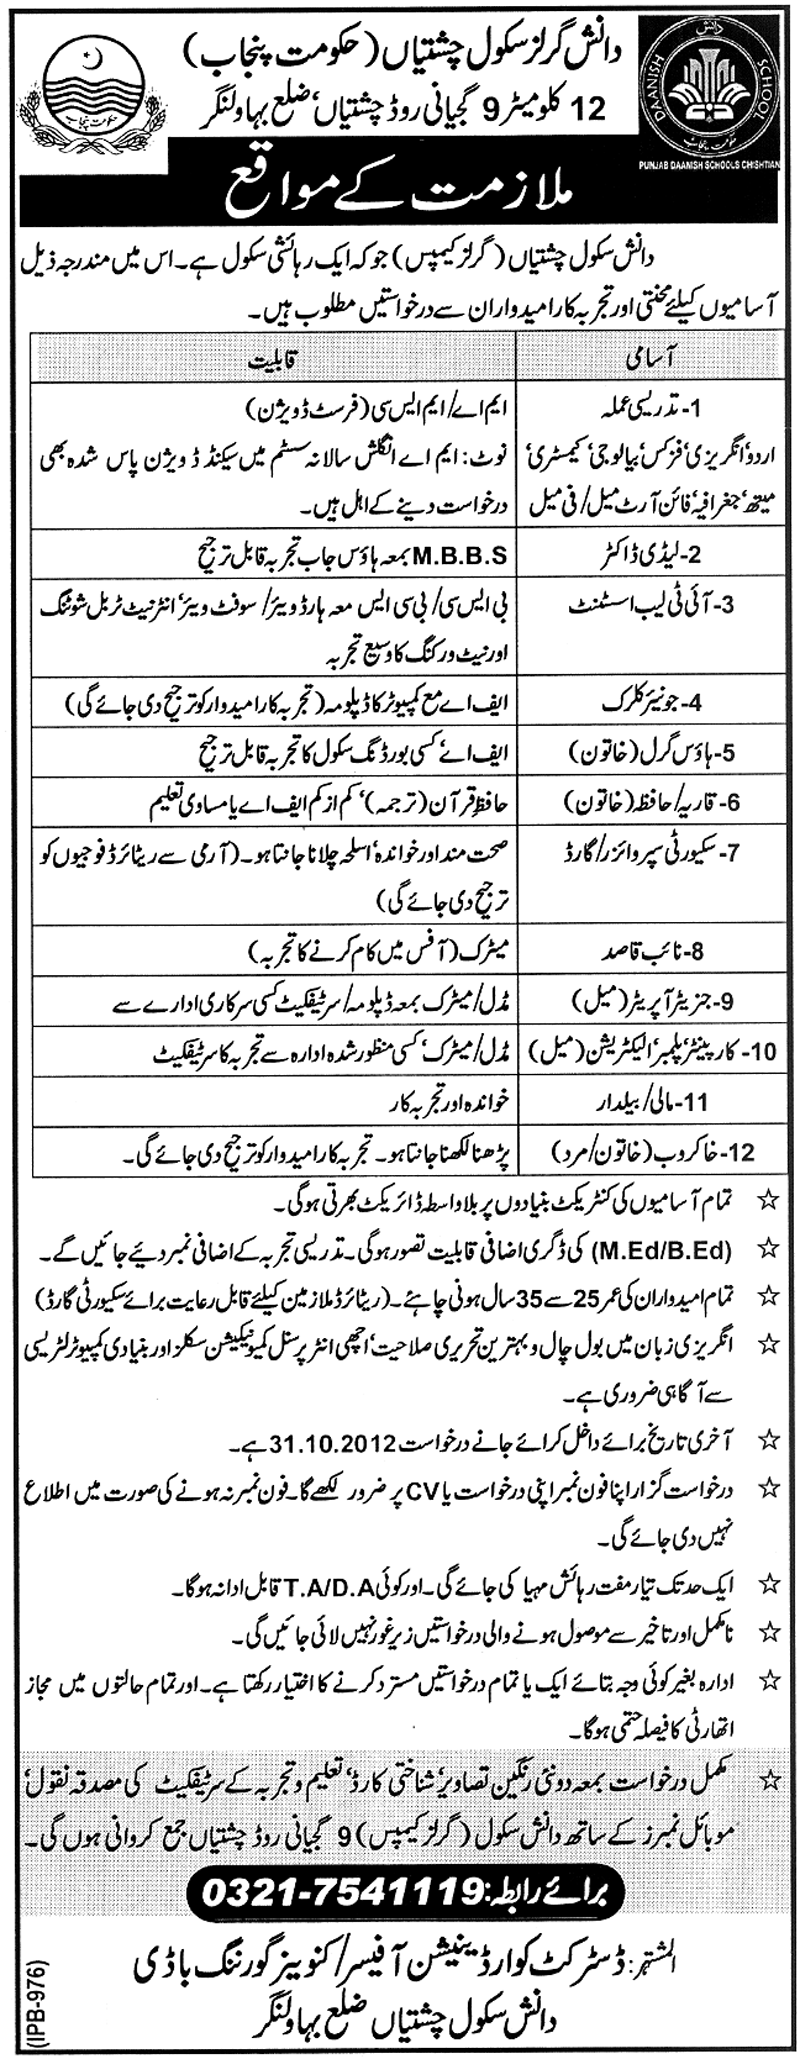 دانش گرلز سکول چشتیاں (حکومت پنجاب)
12 کلومیٹر 9 گجیانی روڈ چشتیاں، ضلع بہاولنگر
حکومت پنجاب
DAANISH SCHOOL
دانش
حکومت پنجاب
PUNJAB DAANISH SCHOOLS CHISHTIAN
ملازمت کے مواقع
دانش سکول چشتیاں (گرلز کیمپس) جو کہ ایک رہائشی سکول ہے۔ اس میں مندرجہ ذیل
آسامیوں کیلئے محنتی اور تجربہ کار امیدواران سے درخواستیں مطلوب ہیں۔
آسامی قابلیت
1- تدریسی عملہ
اردو، انگریزی، فزکس، بیالوجی، کیمسٹری،
میتھ، جغرافیہ، فائن آرٹ میل/فی میل
ایم اے/ایم ایس سی (فرسٹ ڈویژن)
نوٹ: ایم اے انگلش سالانہ سسٹم میں سیکنڈ ڈویژن پاس شدہ بھی
درخواست دینے کے اہل ہیں۔
2- لیڈی ڈاکٹر M.B.B.S بمعہ ہاؤس جاب تجربہ قابل ترجیح
3- آئی ٹی لیب اسسٹنٹ بی ایس سی/بی سی ایس معہ ہارڈ ویئر/سوفٹ ویئر، انٹرنیٹ ٹربل شوٹنگ
اور نیٹ ورکنگ کا وسیع تجربہ
4- جونیئر کلرک ایف اے مع کمپیوٹر کا ڈپلومہ (تجربہ کار امیدوار کو ترجیح دی جائے گی)
5- ہاؤس گرل (خاتون) ایف اے، کسی بورڈنگ سکول کا تجربہ قابل ترجیح
6- قاریہ/حافظہ (خاتون) حافظِ قرآن (ترجمہ)، کم از کم ایف اے یا مساوی تعلیم
7- سکیورٹی سپروائزر/گارڈ صحت مند اور خواندہ، اسلحہ چلانا جانتا ہو۔ (آرمی سے ریٹائرڈ فوجیوں کو
ترجیح دی جائے گی)
8- نائب قاصد میٹرک (آفس میں کام کرنے کا تجربہ)
9- جنریٹر آپریٹر (میل) مڈل/میٹرک بمعہ ڈپلومہ/سرٹیفکیٹ کسی سرکاری ادارے سے
10- کارپینٹر، پلمبر، الیکٹریشن (میل) مڈل/میٹرک، کسی منظور شدہ ادارہ سے تجربہ کا سرٹیفکیٹ
11- مالی/بیلدار خواندہ اور تجربہ کار
12- خاکروب (خاتون/مرد) پڑھنا لکھنا جانتا ہو۔ تجربہ کار امیدوار کو ترجیح دی جائے گی۔
☆ تمام آسامیوں کی کنٹریکٹ بنیادوں پر بلاواسطہ ڈائریکٹ بھرتی ہو گی۔
☆ (M.Ed/B.Ed) کی ڈگری اضافی قابلیت تصور ہوگی۔ تدریسی تجربہ کے اضافی نمبر دیئے جائیں گے۔
☆ تمام امیدواران کی عمر 25 سے 35 سال ہونی چاہئے۔ (ریٹائرڈ ملازمین کیلئے قابل رعایت برائے سکیورٹی گارڈ)
☆ انگریزی زبان میں بول چال و بہترین تحریری صلاحیت، اچھی انٹر پرسنل کمیونیکیشن سکلز اور بنیادی کمپیوٹر لٹریسی
سے آگاہی ضروری ہے۔
☆ آخری تاریخ برائے داخل کرائے جانے درخواست 31.10.2012 ہے۔
☆ درخواست گزار اپنا فون نمبر اپنی درخواست یا CV پر ضرور لکھے گا۔ فون نمبر نہ ہونے کی صورت میں اطلاع
نہیں دی جائے گی۔
☆ ایک حد تک تیار مفت رہائش مہیا کی جائے گی۔ اور کوئی T.A/D.A قابل ادا نہ ہوگا۔
☆ نامکمل اور تاخیر سے موصول ہونے والی درخواستیں زیر غور نہیں لائی جائیں گی۔
☆ ادارہ بغیر کوئی وجہ بتائے ایک یا تمام درخواستیں مسترد کرنے کا اختیار رکھتا ہے۔ اور تمام حالتوں میں مجاز
اتھارٹی کا فیصلہ حتمی ہوگا۔
☆ مکمل درخواست بمعہ دو نئی رنگین تصاویر، شناختی کارڈ، تعلیم و تجربہ کے سرٹیفکیٹ کی مصدقہ نقول،
موبائل نمبرز کے ساتھ دانش سکول (گرلز کیمپس) 9 گجیانی روڈ چشتیاں جمع کروانی ہوں گی۔
برائے رابطہ: 0321-7541119
المشتہر: ڈسٹرکٹ کوارڈینیشن آفیسر/کنوینر گورننگ باڈی
دانش سکول چشتیاں ضلع بہاولنگر
(IPB-976)